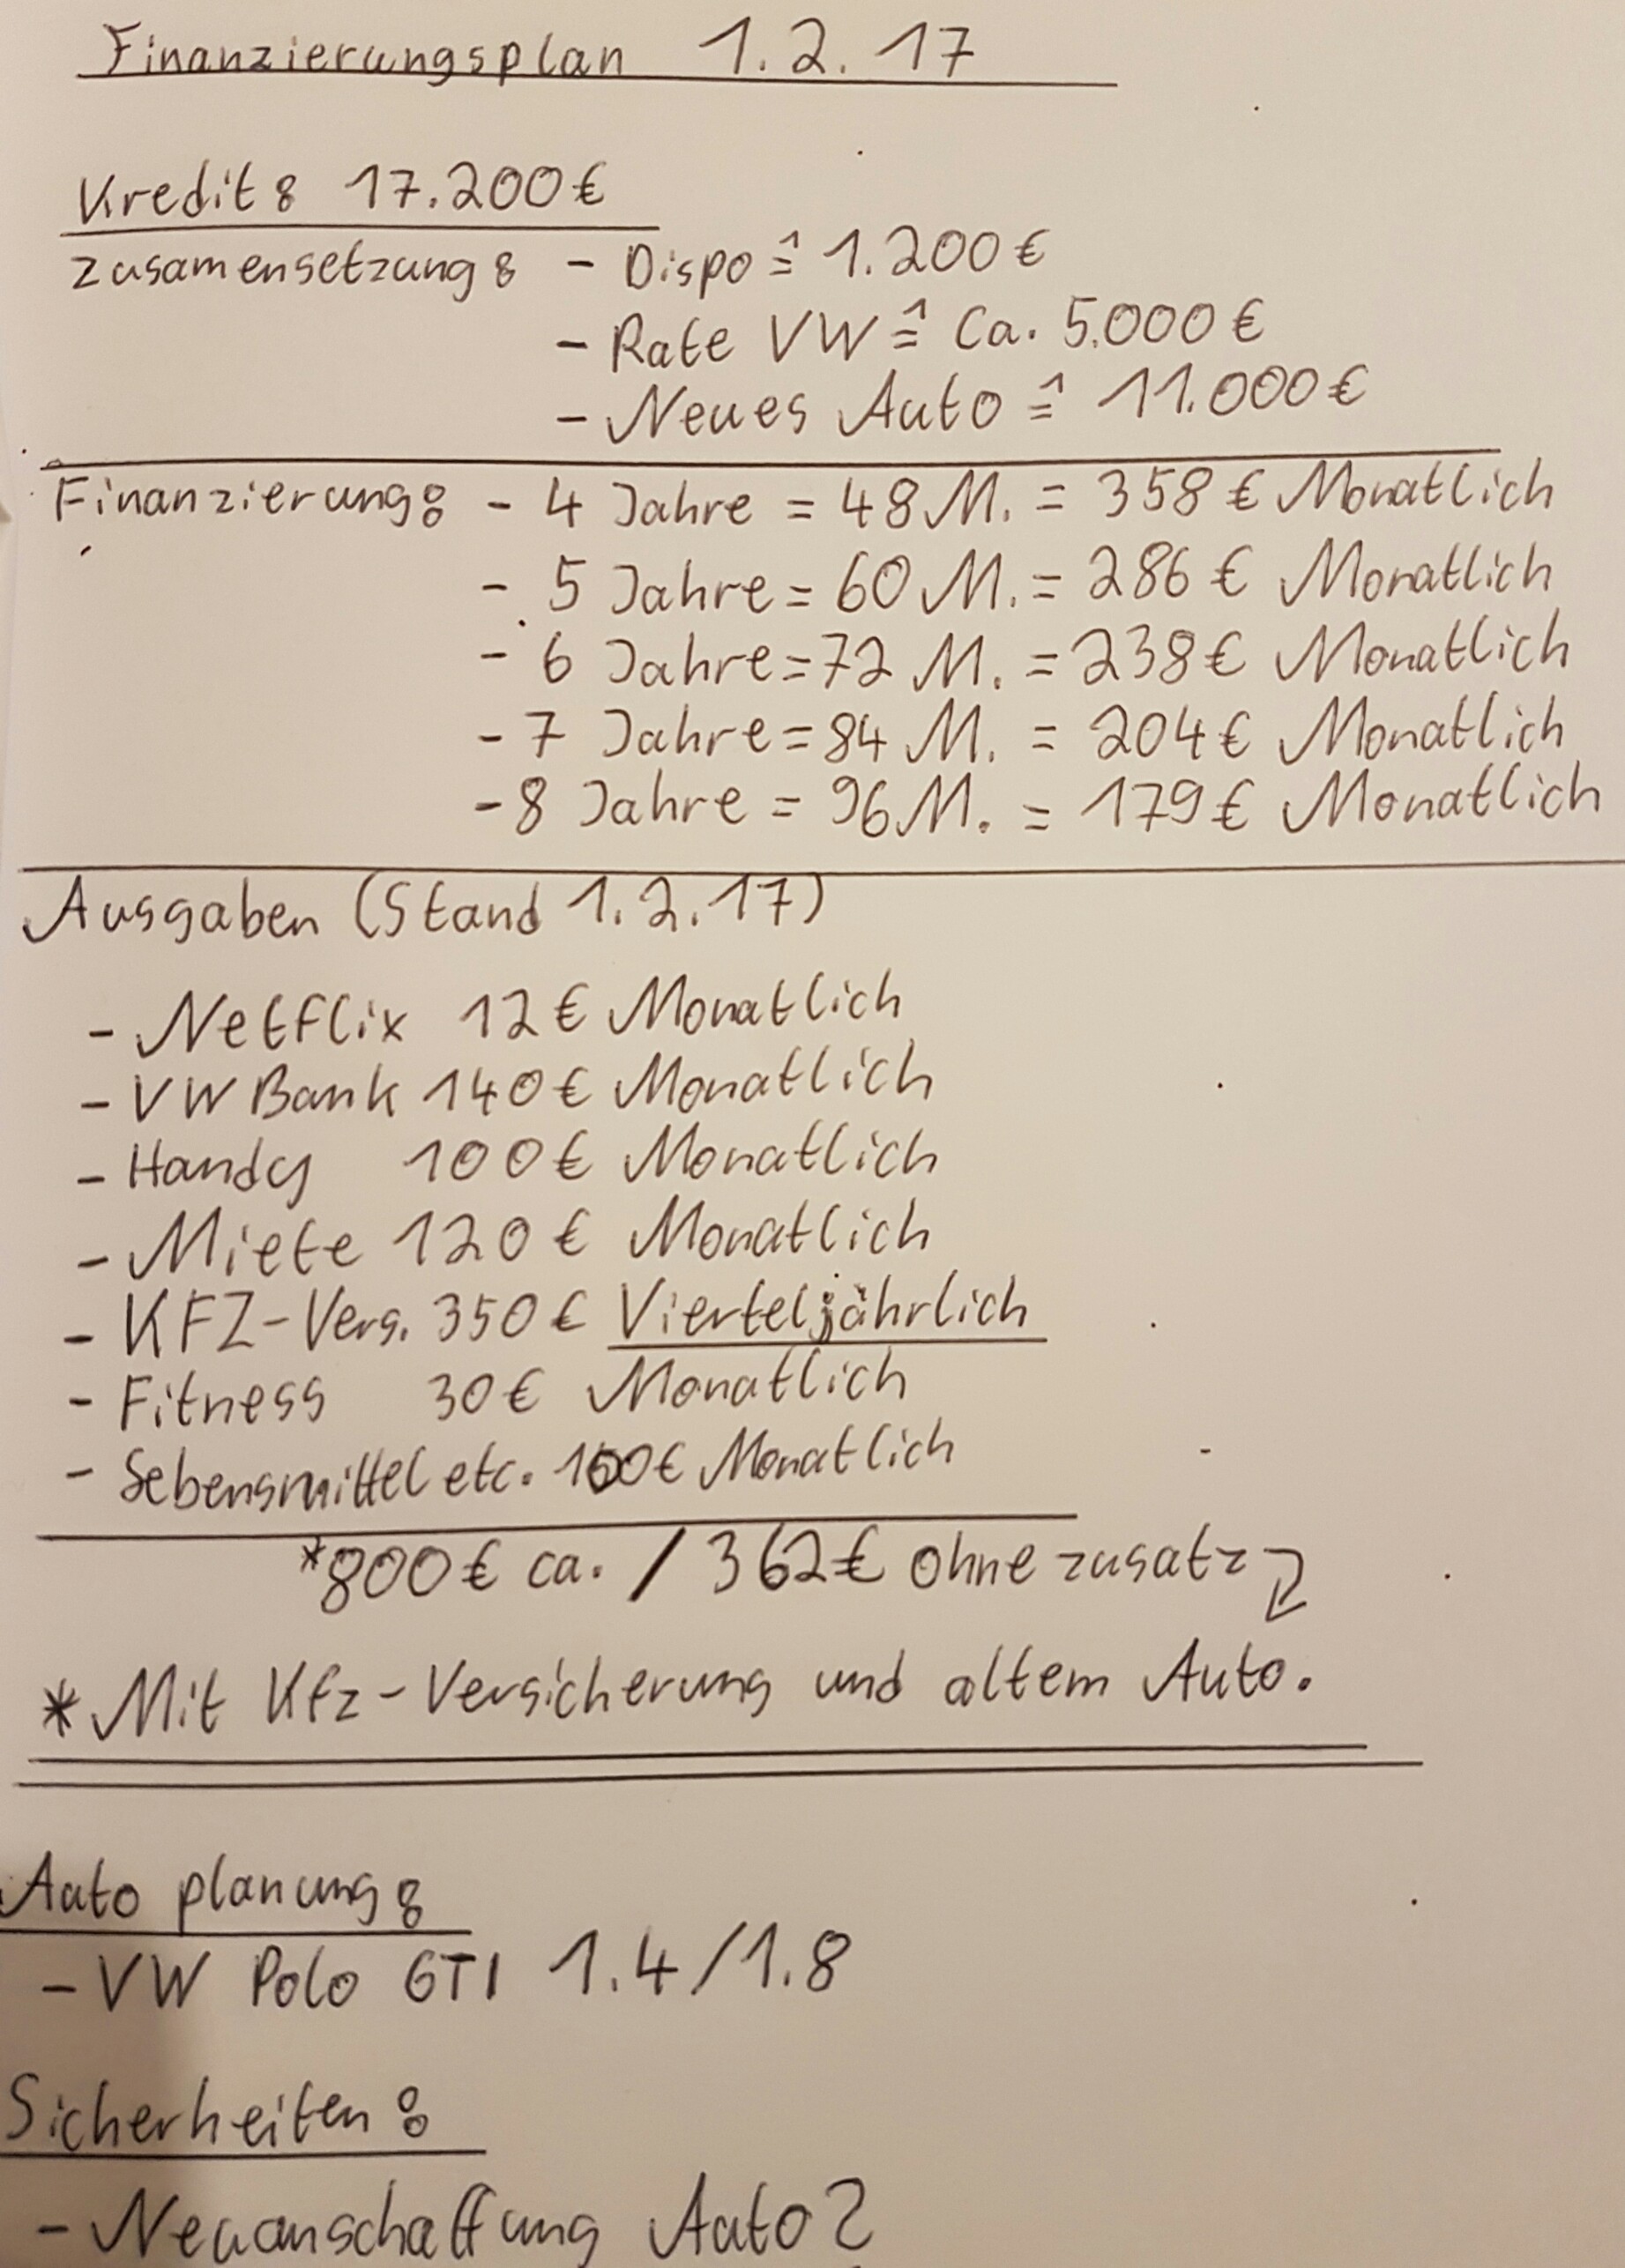 Finanzierungsplan 1.2.17
Kredit: 17.200€
Zusamensetzung: - Dispo ≙ 1.200€
- Rate VW ≙ Ca. 5.000€
- Neues Auto ≙ 11.000€
Finanzierung: - 4 Jahre = 48 M. = 358€ Monatlich
- 5 Jahre = 60 M. = 286€ Monatlich
- 6 Jahre = 72 M. = 238€ Monatlich
- 7 Jahre = 84 M. = 204€ Monatlich
- 8 Jahre = 96 M. = 179€ Monatlich
Ausgaben (Stand 1.2.17)
- Netflix 12€ Monatlich
- VW Bank 140€ Monatlich
- Handy 100€ Monatlich
- Miete 120€ Monatlich
- KFZ-Vers. 350€ Vierteljährlich
- Fitness 30€ Monatlich
- Lebensmittel etc. 100€ Monatlich
*800€ ca. / 362€ ohne zusatz
* Mit Kfz-Versicherung und altem Auto.
Auto planung:
- VW Polo GTI 1.4/1.8
Sicherheiten:
- Neuanschaffung Auto?